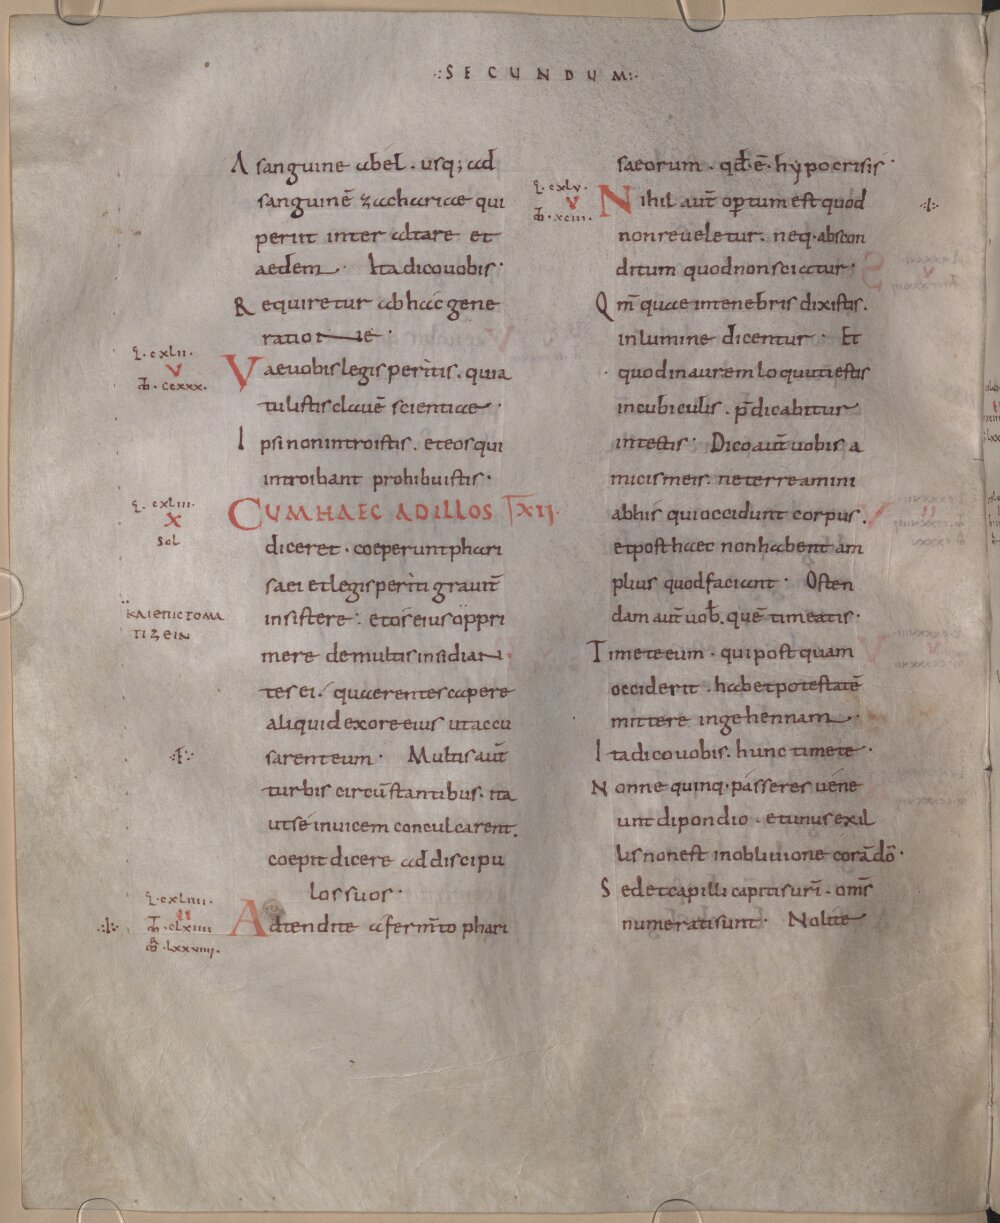 ·:SECUNDUM:·
A sanguine abel · usq; ad
sanguinē zachariae qui
periit inter altare et
aedem · Ita dico vobis ·
Requiretur ab hac gene
ratione ·
L · cxlii ·
V
M · ccxxx ·
Vae vobis legis peritis · quia
tulistis clavē scientiae ·
Ipsi non introistis · et eos qui
introibant prohibuistis ·
L · cxliii ·
X
sol
CUM HAEC AD ILLOS TXII ·
diceret · coeperunt phari
saei et legis periti gravit̄
ΚΑΙΕΠΙCΤΟΜΑ
ΤΙΖΕΙΝ
insistere · et os eius oppri
mere de multis insidian
tes ei · quaerentes capere
aliquid ex ore eius ut accu
sarent eum · Multis aut̄
turbis circū̄stantibus · ita
ut se invicem conculcarent ·
coepit dicere ad discipu
los suos ·
L · cxliiii ·
II
M · clxiiii
M · lxxviiii ·
Adtendite a ferm̄to phari
saeorum · qd̄ · ē · hypocrisis ·
L · cxlv ·
V
M · xciii ·
Nihil aut̄ op̄tum est quod
non reveletur · neq · abscon
ditum quod non sciatur ·
Qm̄ quae in tenebris dixistis ·
in lumine dicentur · Et
quod in aurem loquuti estis
in cubiculis · p̄dicabitur
in tectis · Dico aut̄ vobis a
micis meis · ne terreamini
ab his qui occidunt corpus ·
et post haec non habent am
plius quod faciant · Osten
dam aut̄ vob̄ · quē timeatis ·
Timete eum · qui postquam
occiderit · habet potestatē
mittere in gehennam ·
Ita dico vobis · hunc timete ·
Nonne quinq · passeres vene
unt dipondio · et unus ex il
lis non est in oblivione corā dō ·
Sed et capilli capitis uri̅ · om̄s
numerati sunt · Nolite